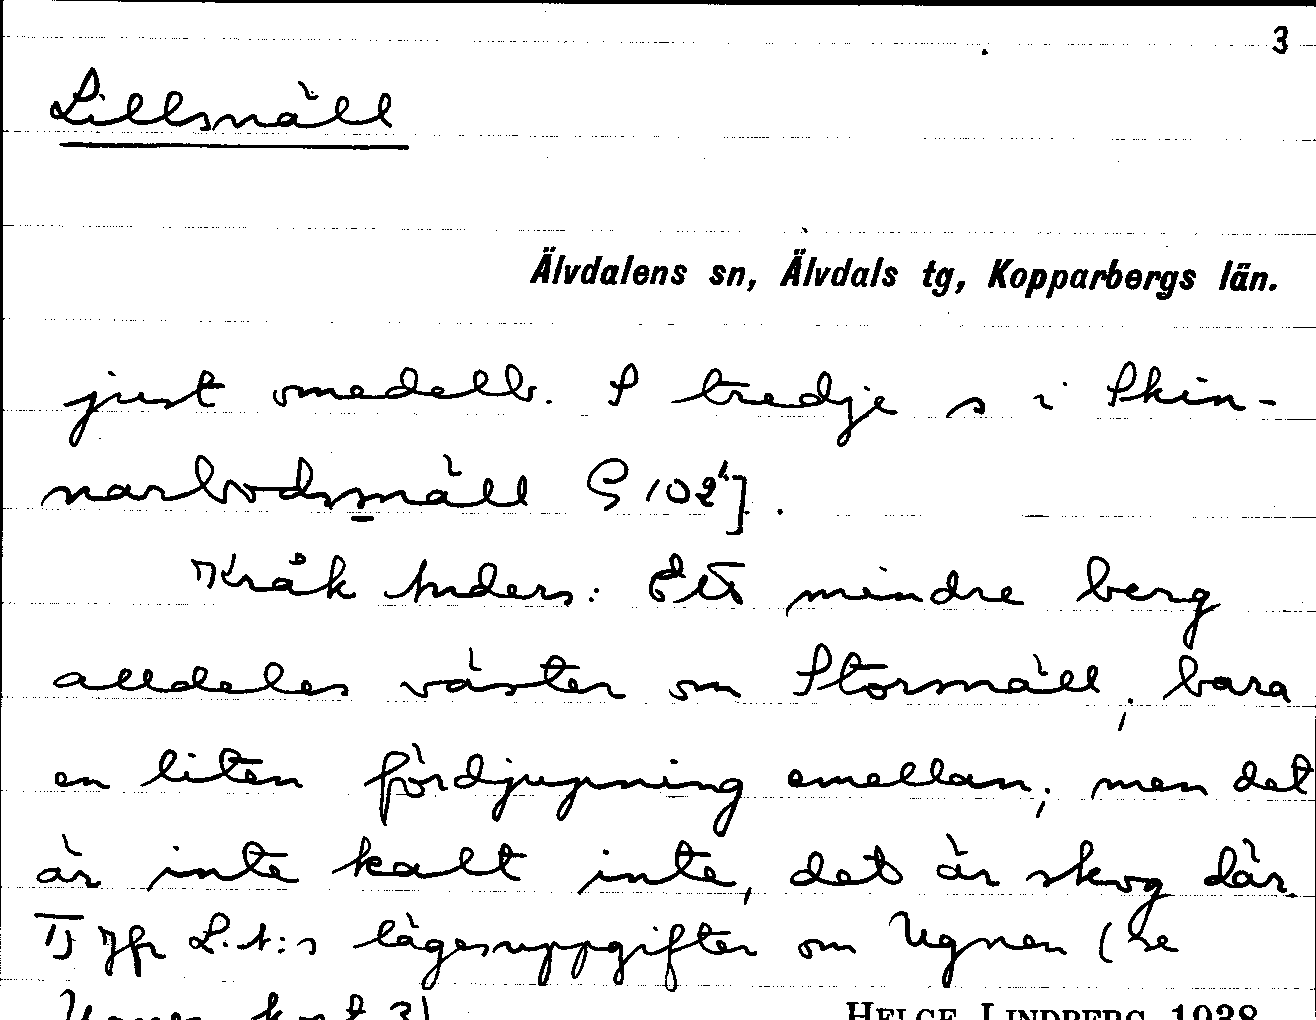 3
Lillsnäll
Älvdalens sn, Älvdals tg, Kopparbergs län.
just omedelb. I tredje s i Skin-
narbodsmäll G 102"].
Kråk Anders: Ett mindre berg
alldeles väster om Storsnäll; bara
en liten fördjupning emellan; men det
är inte kalt inte, det är skog där.
Jfr L. A:s lägesuppgifter om Ugnen (se
Ugnen kort 3)
HELGE LINDBERG 1938